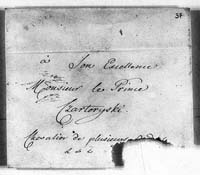 37
à Son Excellence
Monsieur le Prince
Czartoryski
Chevalier de plusieurs